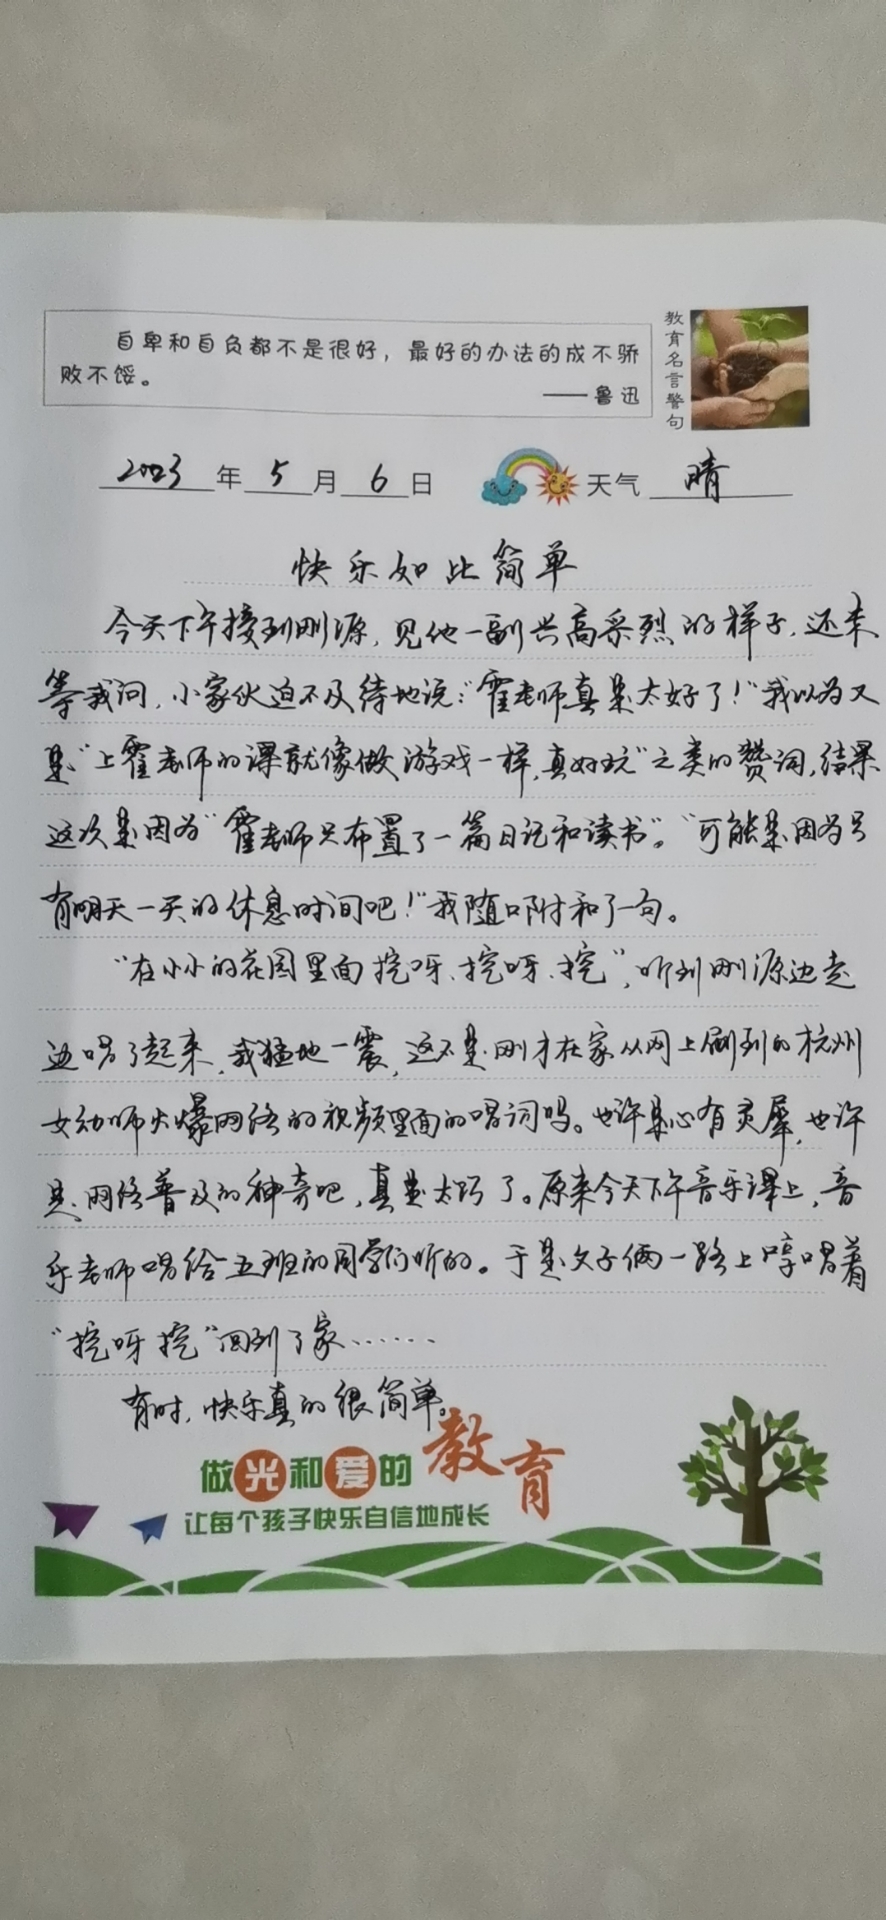 自卑和自负都不是很好，最好的办法的成不骄
败不馁。
——鲁迅
教育名言警句
2023年5月6日 天气 晴
快乐如此简单
今天下午接到刚源，见他一副兴高采烈的样子，还未
等我问，小家伙迫不及待地说：“霍老师真是太好了！”我以为又
是“上霍老师的课就像做游戏一样，真好玩”之类的赞词，结果
这次是因为“霍老师只布置了一篇日记和读书”。“可能是因为只
有明天一天的休息时间吧！”我随口附和了一句。
“在小小的花园里面挖呀、挖呀、挖”，听到刚源边走
边唱了起来，我猛地一震，这不是刚才在家从网上刷到的杭州
女幼师火爆网络的视频里面的唱词吗。也许是心有灵犀，也许
是网络普及的神奇吧，真是太巧了。原来今天下午音乐课上，音
乐老师唱给五班的同学们听的。于是父子俩一路上哼唱着
“挖呀挖”回到了家……
有时，快乐真的很简单。
做光和爱的教育
让每个孩子快乐自信地成长